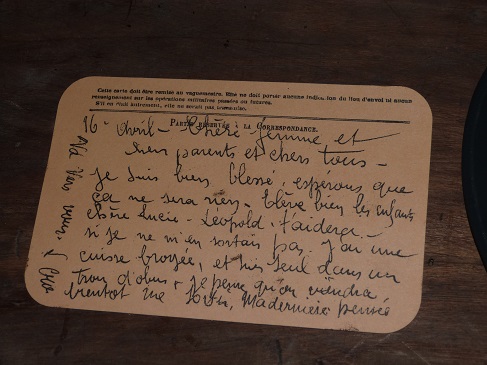 Cette carte doit être remise au vaguemestre. Elle ne doit porter aucune indication du lieu d'envoi ni aucun
renseignement sur les opérations militaires passées ou futures.
S'il en était autrement, elle ne serait pas transmise.
PARTIE RÉSERVÉE A LA CORRESPONDANCE.
16 avril - Chère femme et
chers parents et chers tous -
Je suis bien blessé, espérons que
ça ne sera rien. Elève bien les enfants
chère Lucie - Léopold t'aidera -
si je ne m'en sortais pas, j'ai une
cuisse broyée, et suis seul dans un
trou d'obus, je pense qu'on viendra
bientôt me Ma dernière pensée
va vers vous.